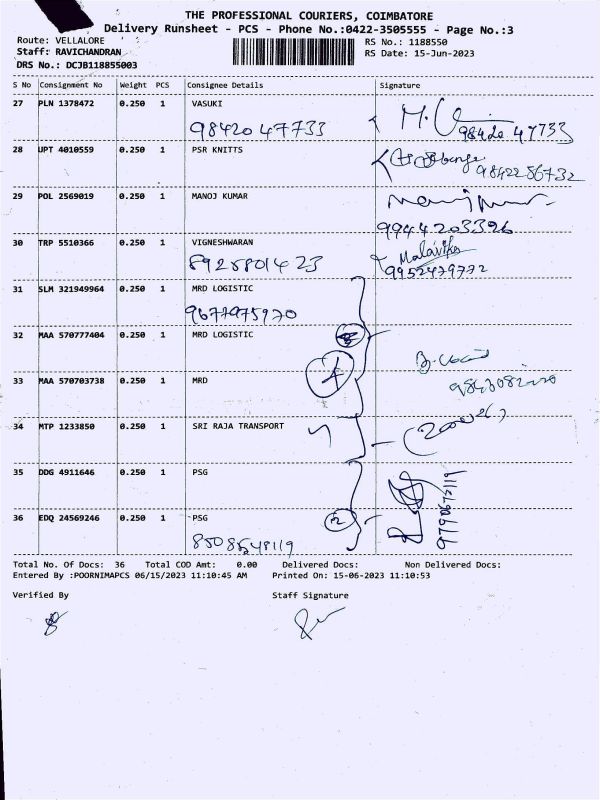 THE PROFESSIONAL COURIERS, COIMBATORE
Delivery Runsheet - PCS - Phone No.:0422-3505555 - Page No.:3
Route: VELLALORE
RS No.: 1188550
Staff: RAVICHANDRAN
RS Date: 15-Jun-2023
DRS No.: DCJB118855003
S No Consignment No Weight PCS Consignee Details Signature
27 PLN 1378472 0.250 1 VASUKI
9842047733
98420 47733
28 UPT 4010559 0.250 1 PSR KNITTS
9842286732
29 POL 2569019 0.250 1 MANOJ KUMAR
9944203326
30 TRP 5510366 0.250 1 VIGNESHWARAN
89258801423 Malavika
9952479772
31 SLM 321949964 0.250 1 MRD LOGISTIC
9677975970
32 MAA 570777404 0.250 1 MRD LOGISTIC
33 MAA 570703738 0.250 1 MRD
4
34 MTP 1233850 0.250 1 SRI RAJA TRANSPORT
35 DDG 4911646 0.250 1 PSG
36 EDQ 24569246 0.250 1 PSG
2
8508548119
9790675119
Total No. Of Docs: 36 Total COD Amt: 0.00 Delivered Docs: Non Delivered Docs:
Entered By :POORNIMAPCS 06/15/2023 11:10:45 AM Printed On: 15-06-2023 11:10:53
Verified By Staff Signature